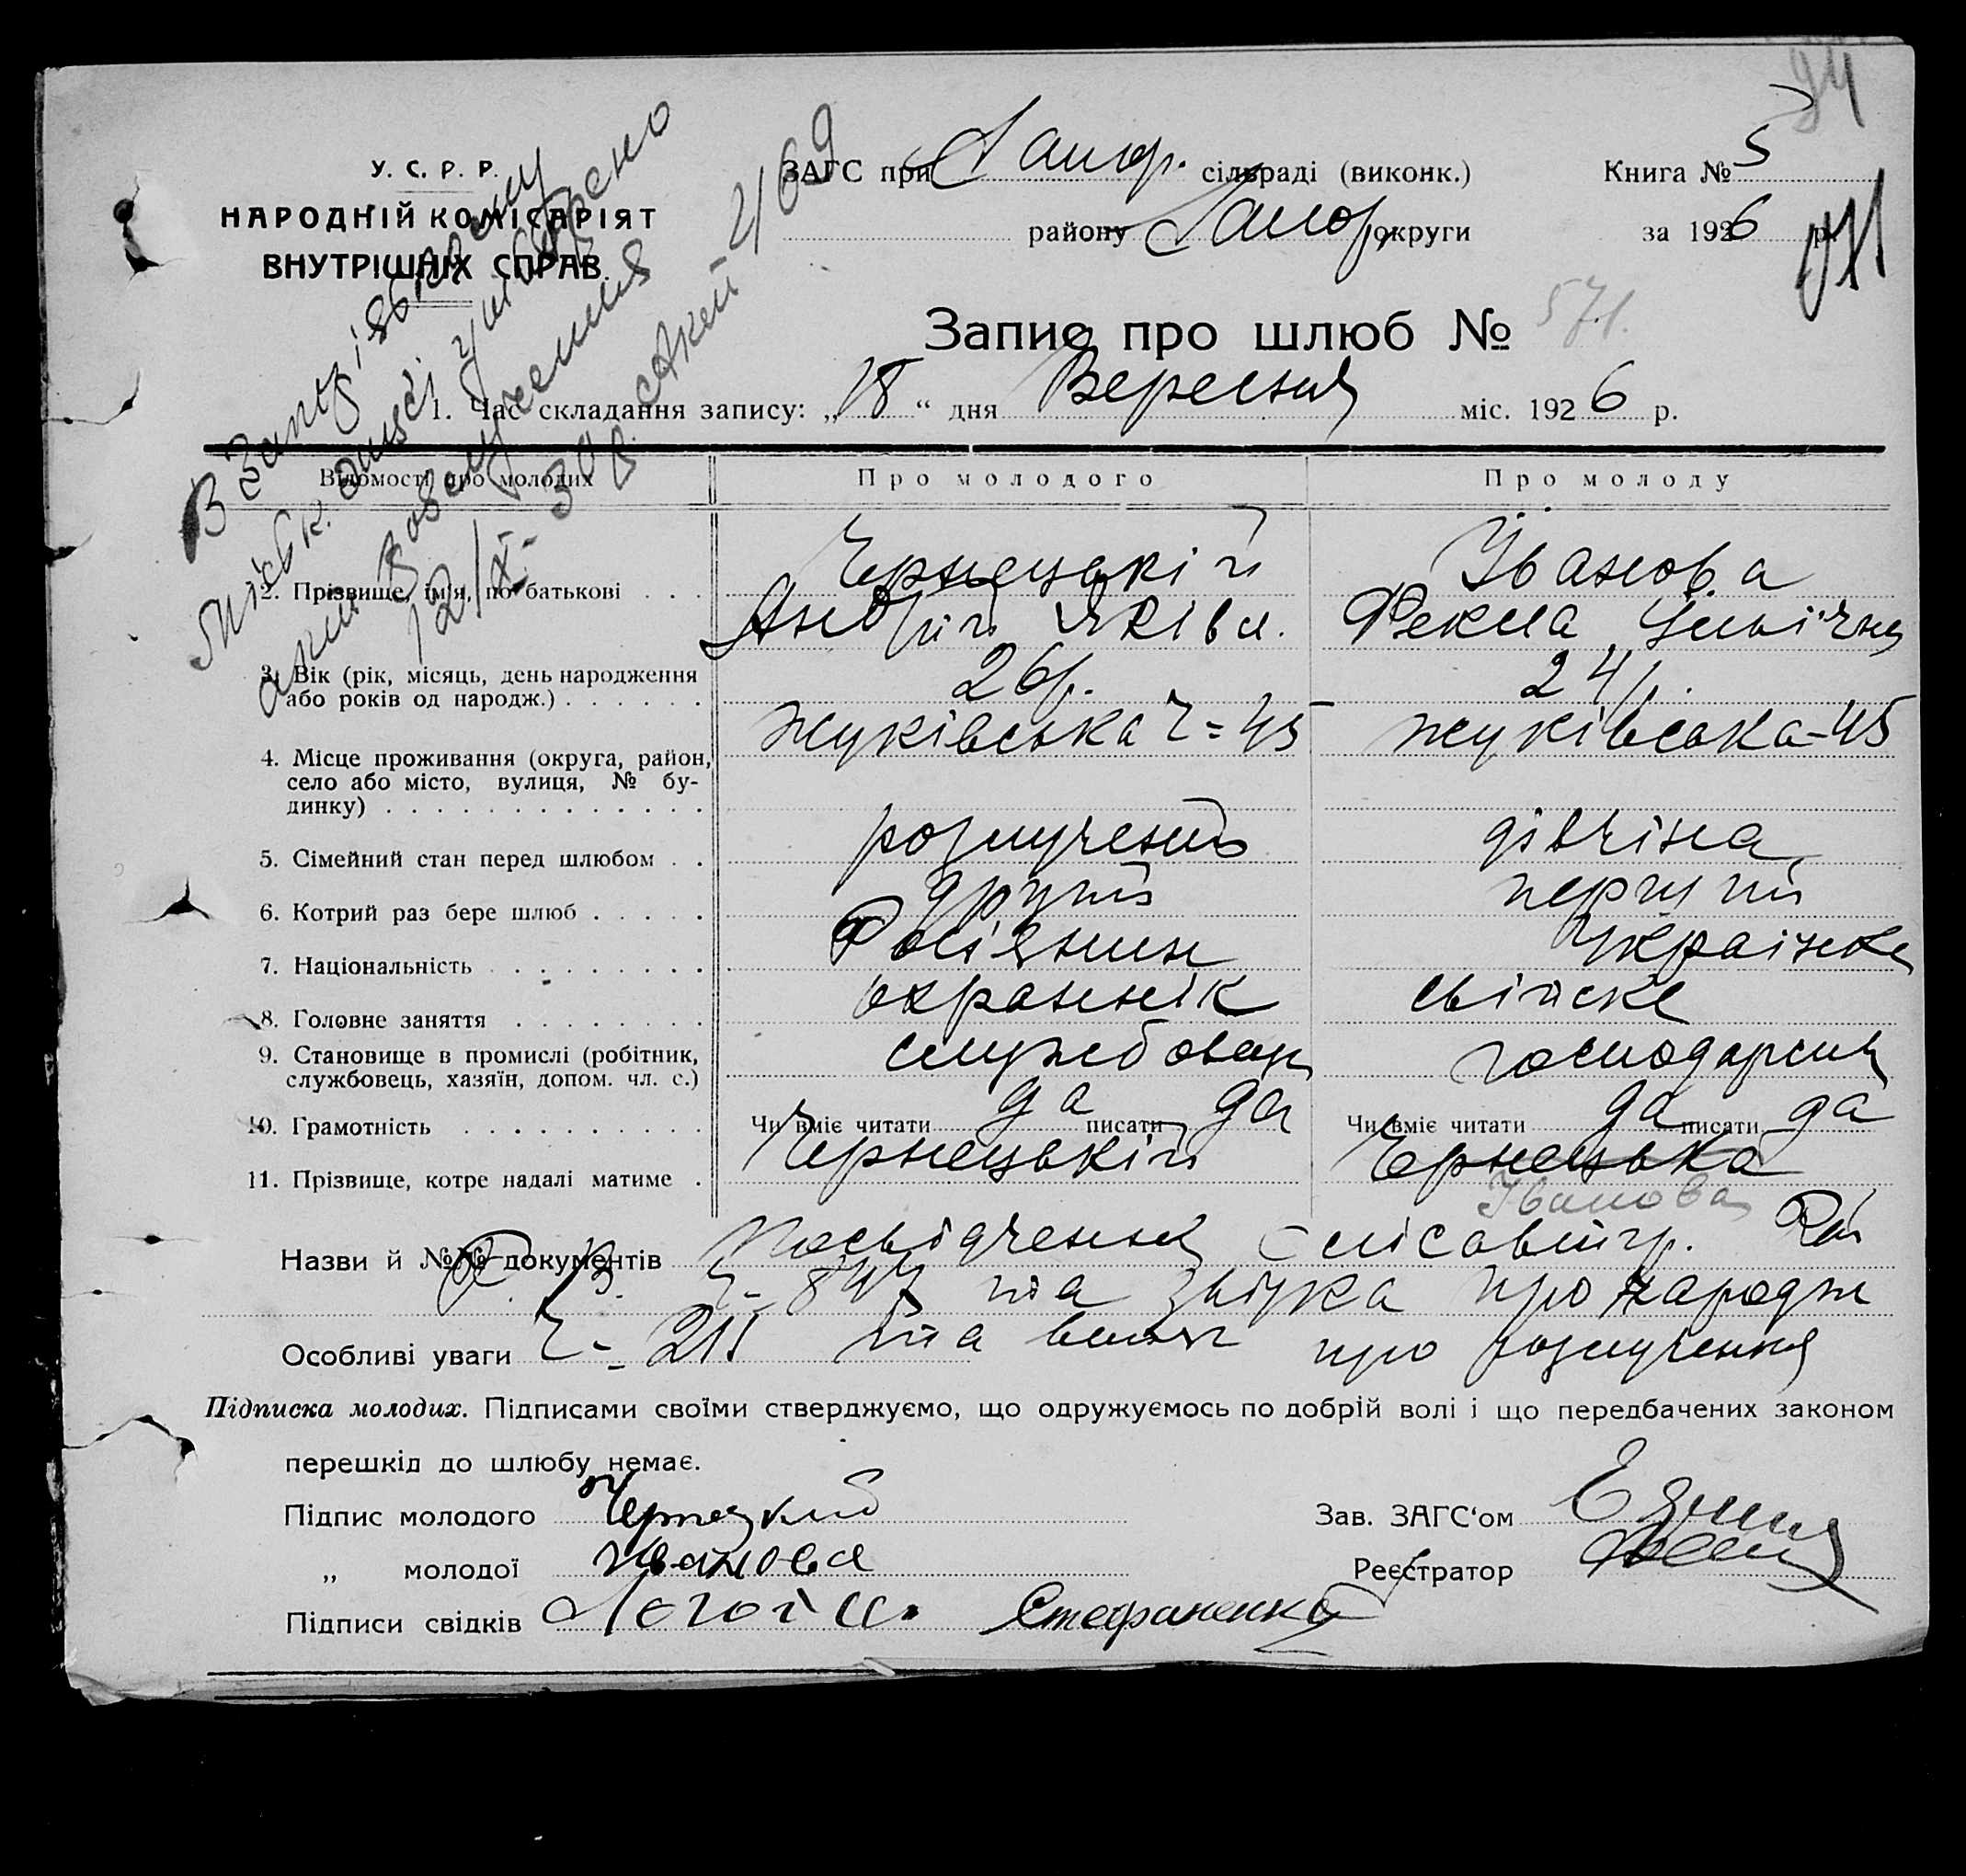 94
У. С. Р. Р.
НАРОДНІЙ КОМІСАРІЯТ
ВНУТРІШНІХ СПРАВ.
ЗАГС при Запор. сільраді (виконк.)
району Запор. округи
Книга № 5
за 1926 р.
571
Запис про шлюб № 571.
1. Час складання запису: „18“ дня Вересня міс. 1926 р.
В Запоріжському
Міськ.
2169
Відомості про молодих Про молодого Про молоду
2. Прізвище, ім'я, по батькові . . . Чернецькій Іванова
Андрій Яківл. Фекла Ільїчна
3. Вік (рік, місяць, день народження
або років од народж.) . . . . . . 26р. 24р.
Жуківська Ч=45 Жуківська-45
4. Місце проживання (округа, район,
село або місто, вулиця, № бу-
динку) . . . . . . . . . . . . .
5. Сімейний стан перед шлюбом . . розлучений дівчіна
6. Котрий раз бере шлюб . . . . . другий первий
7. Національність . . . . . . . . . Росіянин Українка
8. Головне заняття . . . . . . . . охраннік сільске
9. Становище в промислі (робітник,
службовець, хазяїн, допом. чл. с.) службовець господарсив
10. Грамотність . . . . . . . . . . Чи вміє читати да писати да Чи вміє читати да писати да
11. Прізвище, котре надалі матиме . Чернецькій Чернецька
Іванова
Назви й №№ документів Посвідчення Єлісаветгр. Рай
Ч- 847 та звідка про народж
Особливі уваги Ч- 211 та про розлучення
Підписка молодих. Підписами своїми стверджуємо, що одружуємось по добрій волі і що передбачених законом
перешкід до шлюбу немає.
Підпис молодого Чернецкий
„ молодої Иванова
Підписи свідків Стефаненко
Зав. ЗАГС‘ом
Реєстратор